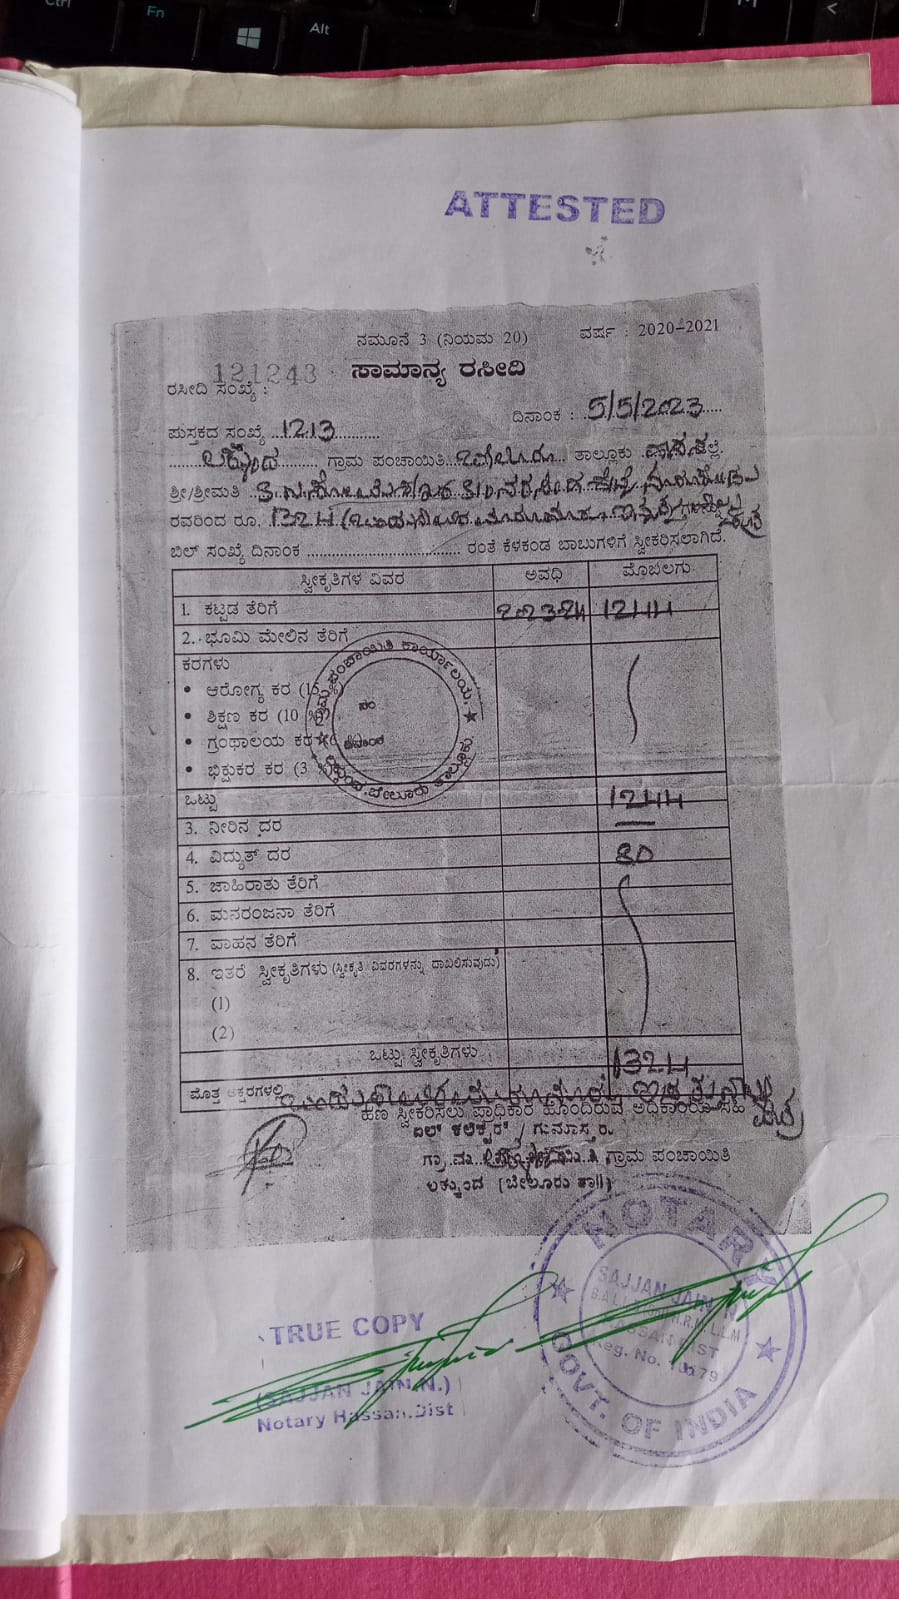 Ctrl
Fn
Alt
ATTESTED
ನಮೂನೆ 3 (ನಿಯಮ 20) ವರ್ಷ : 2020-2021
121243 ಸಾಮಾನ್ಯ ರಸೀದಿ
ರಸೀದಿ ಸಂಖ್ಯೆ :
ದಿನಾಂಕ : 5/5/2023
ಪುಸ್ತಕದ ಸಂಖ್ಯೆ 1213
ಲಕ್ಕುಂದ ಗ್ರಾಮ ಪಂಚಾಯಿತಿ ಬೇಲೂರು ತಾಲ್ಲೂಕು ಹಾಸನ ಜಿಲ್ಲೆ.
ಶ್ರೀ/ಶ್ರೀಮತಿ
ರವರಿಂದ ರೂ. 1324
ಬಿಲ್ ಸಂಖ್ಯೆ ದಿನಾಂಕ ರಂತೆ ಕೆಳಕಂಡ ಬಾಬುಗಳಿಗೆ ಸ್ವೀಕರಿಸಲಾಗಿದೆ.
ಸ್ವೀಕೃತಿಗಳ ವಿವರ ಅವಧಿ ಮೊಬಲಗು
1. ಕಟ್ಟಡ ತೆರಿಗೆ 202324 1244
2. ಭೂಮಿ ಮೇಲಿನ ತೆರಿಗೆ
ಕರಗಳು
• ಆರೋಗ್ಯ ಕರ (15 %)
• ಶಿಕ್ಷಣ ಕರ (10 %)
• ಗ್ರಂಥಾಲಯ ಕರ
• ಭಿಕ್ಷುಕರ ಕರ (3 %)
ಗ್ರಾಮ ಪಂಚಾಯಿತಿ ಕಾರ್ಯಾಲಯ,
ನಂ
ದಿನಾಂಕ
ಲಕ್ಕುಂದ, ಬೇಲೂರು ತಾಲ್ಲೂಕು.
ಒಟ್ಟು 1244
3. ನೀರಿನ ದರ
4. ವಿದ್ಯುತ್ ದರ 80
5. ಜಾಹಿರಾತು ತೆರಿಗೆ
6. ಮನರಂಜನಾ ತೆರಿಗೆ
7. ವಾಹನ ತೆರಿಗೆ
8. ಇತರೆ ಸ್ವೀಕೃತಿಗಳು (ಸ್ವೀಕೃತಿ ವಿವರಗಳನ್ನು ದಾಖಲಿಸುವುದು)
(1)
(2)
ಒಟ್ಟು ಸ್ವೀಕೃತಿಗಳು 1324
ಮೊತ್ತ ಅಕ್ಷರಗಳಲ್ಲಿ
ಹಣ ಸ್ವೀಕರಿಸಲು ಪ್ರಾಧಿಕಾರ ಹೊಂದಿರುವ ಅಧಿಕಾರಿಯ ಸಹಿ
ಬಿಲ್ ಕಲೆಕ್ಟರ್ / ಗುಮಾಸ್ತರು.
ಗ್ರಾಮ ಪಂಚಾಯಿತಿ
ಲಕ್ಕುಂದ (ಬೇಲೂರು ತಾ||)
NOTARY
SAJJAN JAIN N
HASSAN DIST
Reg. No.
GOVT. OF INDIA
TRUE COPY
(SAJJAN JAIN N.)
Notary Hassan.Dist